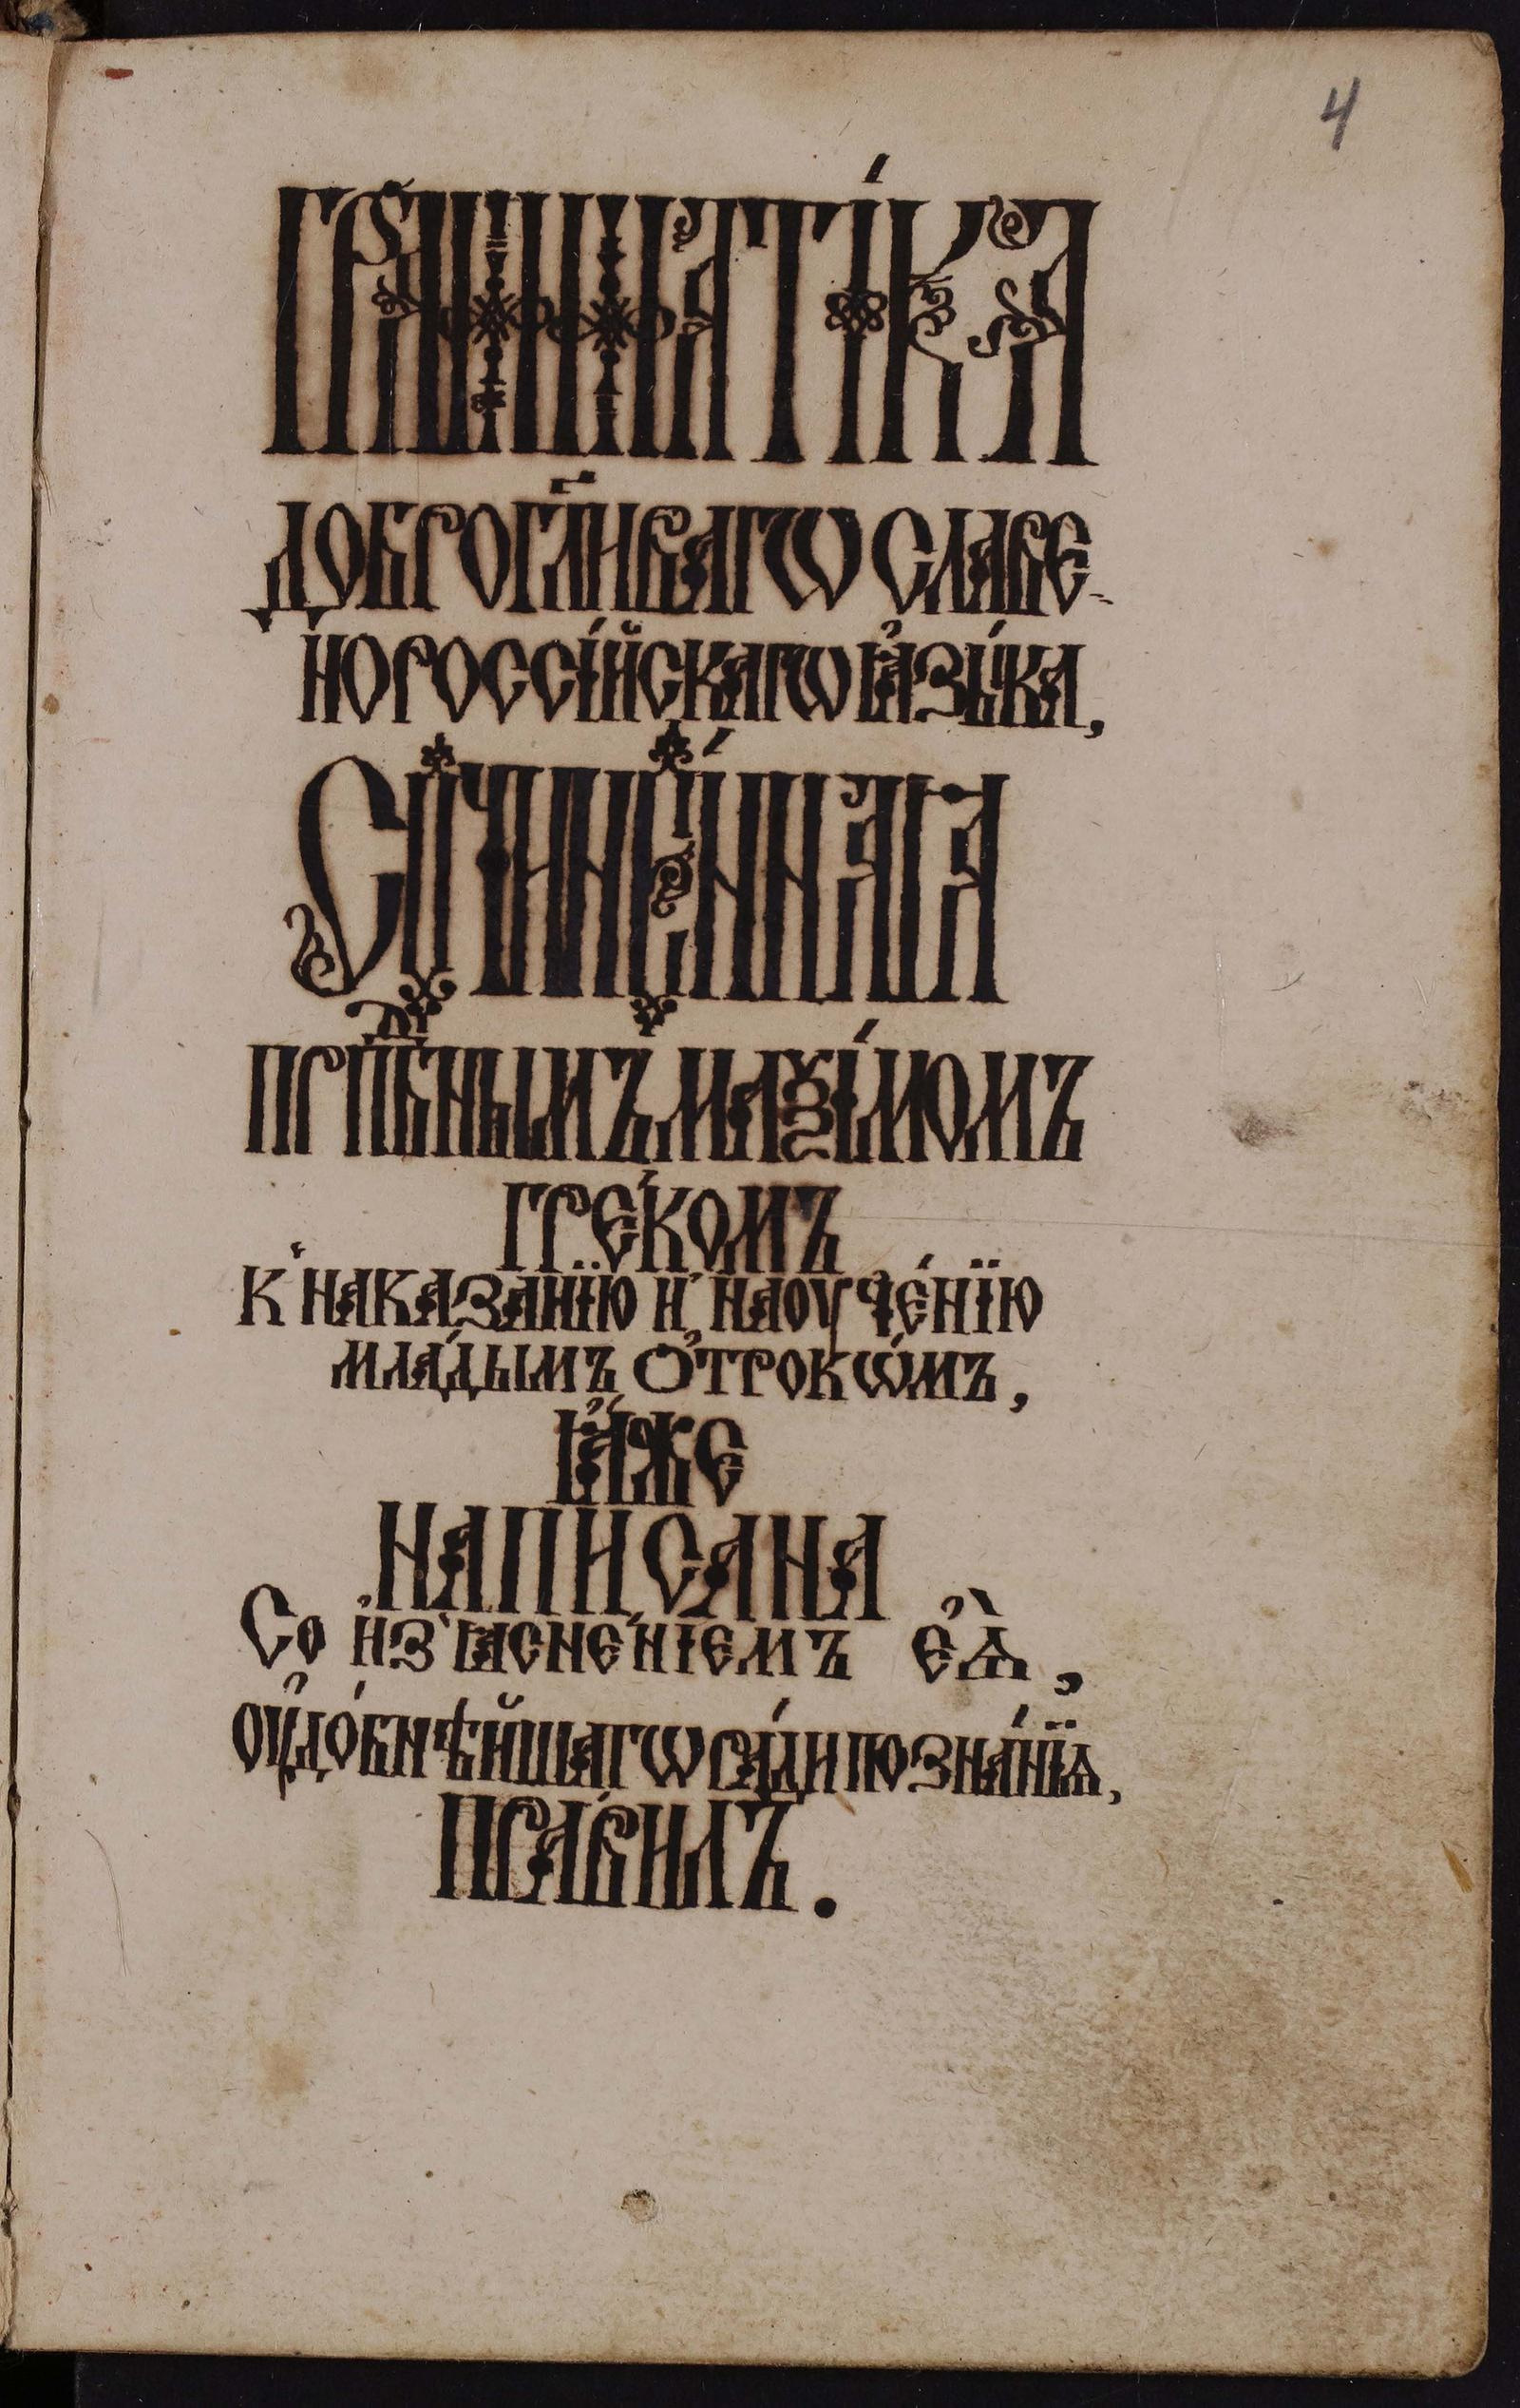 4
ГРАММАТІ́КА
ДОБРОГЛИ́ВАГѠ СЛАВЕ-
НОРОССІ́ЙСКАГѠ ꙖЗЫ́КА,
СОЧИНЕ́ННАꙖ
ПРПⷣБНЫМЪ МАѮІ́МОМЪ
ГРЕ́КОМЪ
К НАКАЗАНЇЮ И҆ НАОУЧЕ́НЇЮ
МЛА́ДЫМЪ Ѻ҆ТРОКѠ́МЪ,
Ꙗ҆́ЖЕ
НАПИСАНА
Со И҆З̾ꙖСНЕ́НІЕМЪ Е҆Ѧ̀,
ОУ҆ДО́БНѢЙШАГѠ РА́ДИ ПОЗНА́НЇѦ,
ПРА́ВИЛЪ.